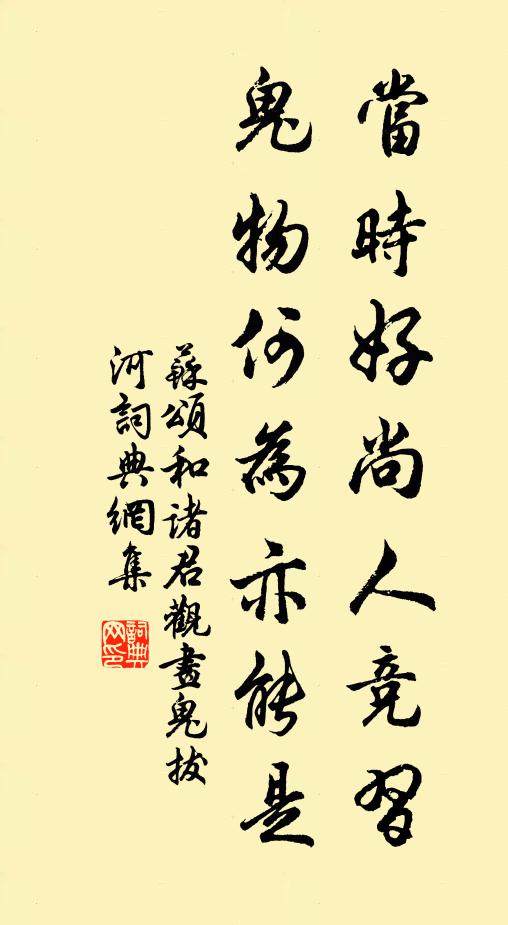 當時好尚人競習
鬼物何為亦能是
蘇頌和諸君觀畫鬼拔
河詞典網集
詞典
网印